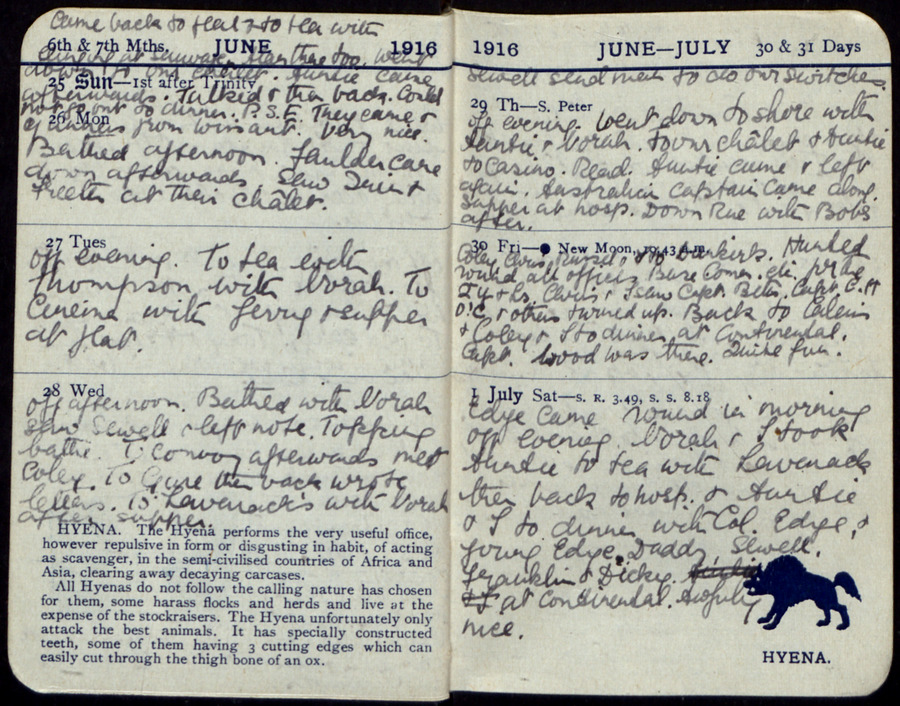 Came back to flat & to tea with
6th & 7th Mths. JUNE 1916
down to our châlet. Auntie came
25 Sun—1st after Trinity
afterwards. Talked & then back. Could
not go out to dinner. P.S.E. They came &
26 Mon
from Wissant. Very nice.
Bathed afternoon. Faulder came
down afterwards Saw &
at their châlet.
27 Tues
off evening. To tea with
Thompson, with Norah. To
Cinema with & supper
at flat.
28 Wed
off afternoon. Bathed with Norah
saw Sewell & left note. Topping
bathe. To Convoy afterwards met
Coley. To Gare then back wrote
letters. To Lavenack's with Norah
after supper.
HYENA. The Hyena performs the very useful office,
however repulsive in form or disgusting in habit, of acting
as scavenger, in the semi-civilised countries of Africa and
Asia, clearing away decaying carcases.
All Hyenas do not follow the calling nature has chosen
for them, some harass flocks and herds and live at the
expense of the stockraisers. The Hyena unfortunately only
attack the best animals. It has specially constructed
teeth, some of them having 3 cutting edges which can
easily cut through the thigh bone of an ox.
1916 JUNE—JULY 30 & 31 Days
Sewell send men to do our switches.
29 Th—S. Peter
off evening. Went down to shore with
Auntie & Norah. To our châlet & Auntie
to Casino. Read. Auntie came & left
again. Australian Captain came along.
Supper at hosp. Down Rue with Bobs
after.
30 Fri—● New Moon, 10.43 a.m.
Coley, Chris, Russel & I to Dunkirk. Hunted
round all offices Base Comm. etc. for the
Chris & I saw Capt. Betts, Capt.
O.C. & others turned up. Back to Calais
& Coley & I to dinner at Continental.
Capt. Wood was there. Quite fun.
1 July Sat—S. R. 3.49, S. S. 8.18
Edge came round in morning
off evening. Norah & I took
Auntie to tea with Lavenack
then back to hosp. & Auntie
& I to dinner with Col. Edge, &
young Edge, Daddy, Sewell,
Franklin & Dickey.
at Continental. Awfully
nice.
HYENA.